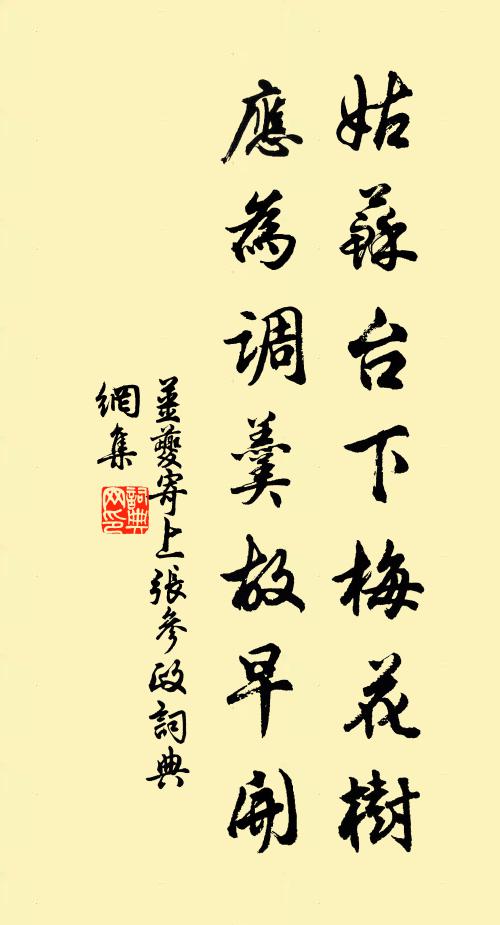 姑蘇台下梅花樹
應為調羹故早開
姜夔寄上張參政詞典
網集
詞典網印